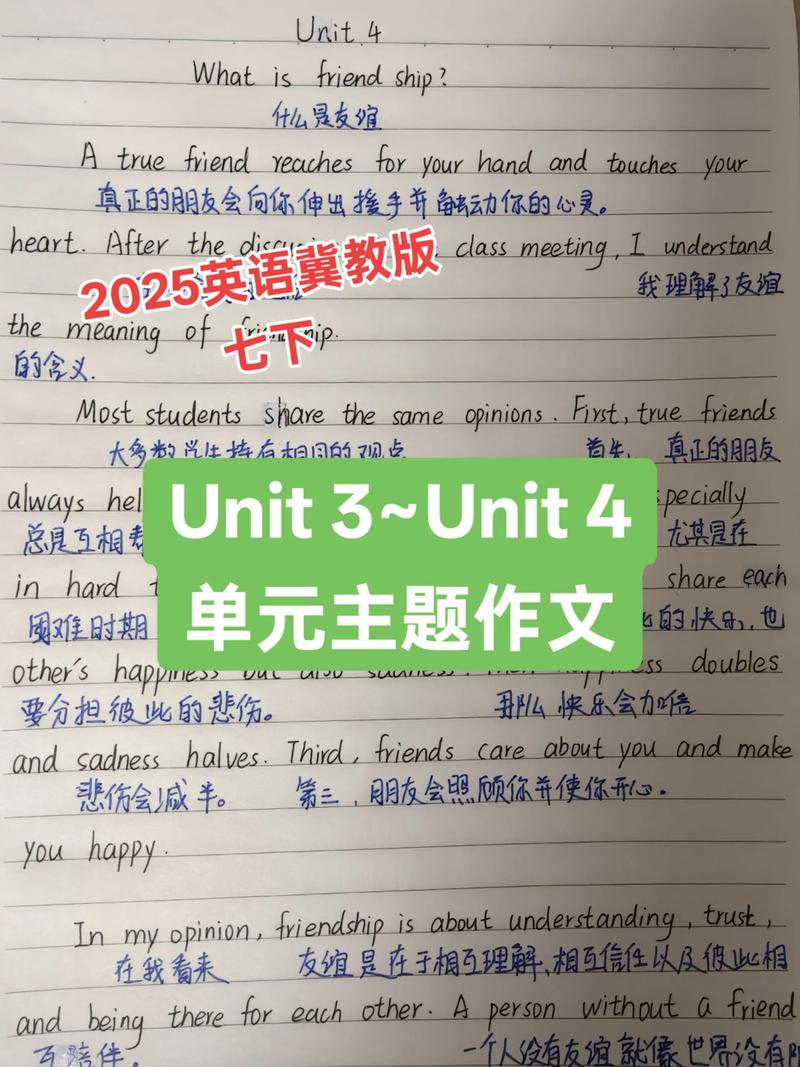 Unit 4
What is friend ship?
什么是友谊
A true friend reaches for your hand and touches your
真正的朋友会向你伸出援手并触动你的心灵。
heart. After the class meeting, I understand
2025英语冀教版
我理解了友谊
the meaning of friendship.
七下
的含义.
Most students share the same opinions. First, true friends
大多数学生持有相同的观点 首先, 真正的朋友
always
Unit 3~Unit 4
总是互相 尤其是在
in hard share each
单元主题作文
困难时期 的快乐,也
other's happiness but also sadness. doubles
要分担彼此的悲伤。 那么快乐会加倍
and sadness halves. Third, friends care about you and make
悲伤会减半。 第三,朋友会照顾你并使你开心.
you happy.
In my opinion, friendship is about understanding, trust,
在我看来 友谊是在于相互理解,相互信任以及彼此相
and being there for each other. A person without a friend
互陪伴。 一个人没有友谊就像世界没有